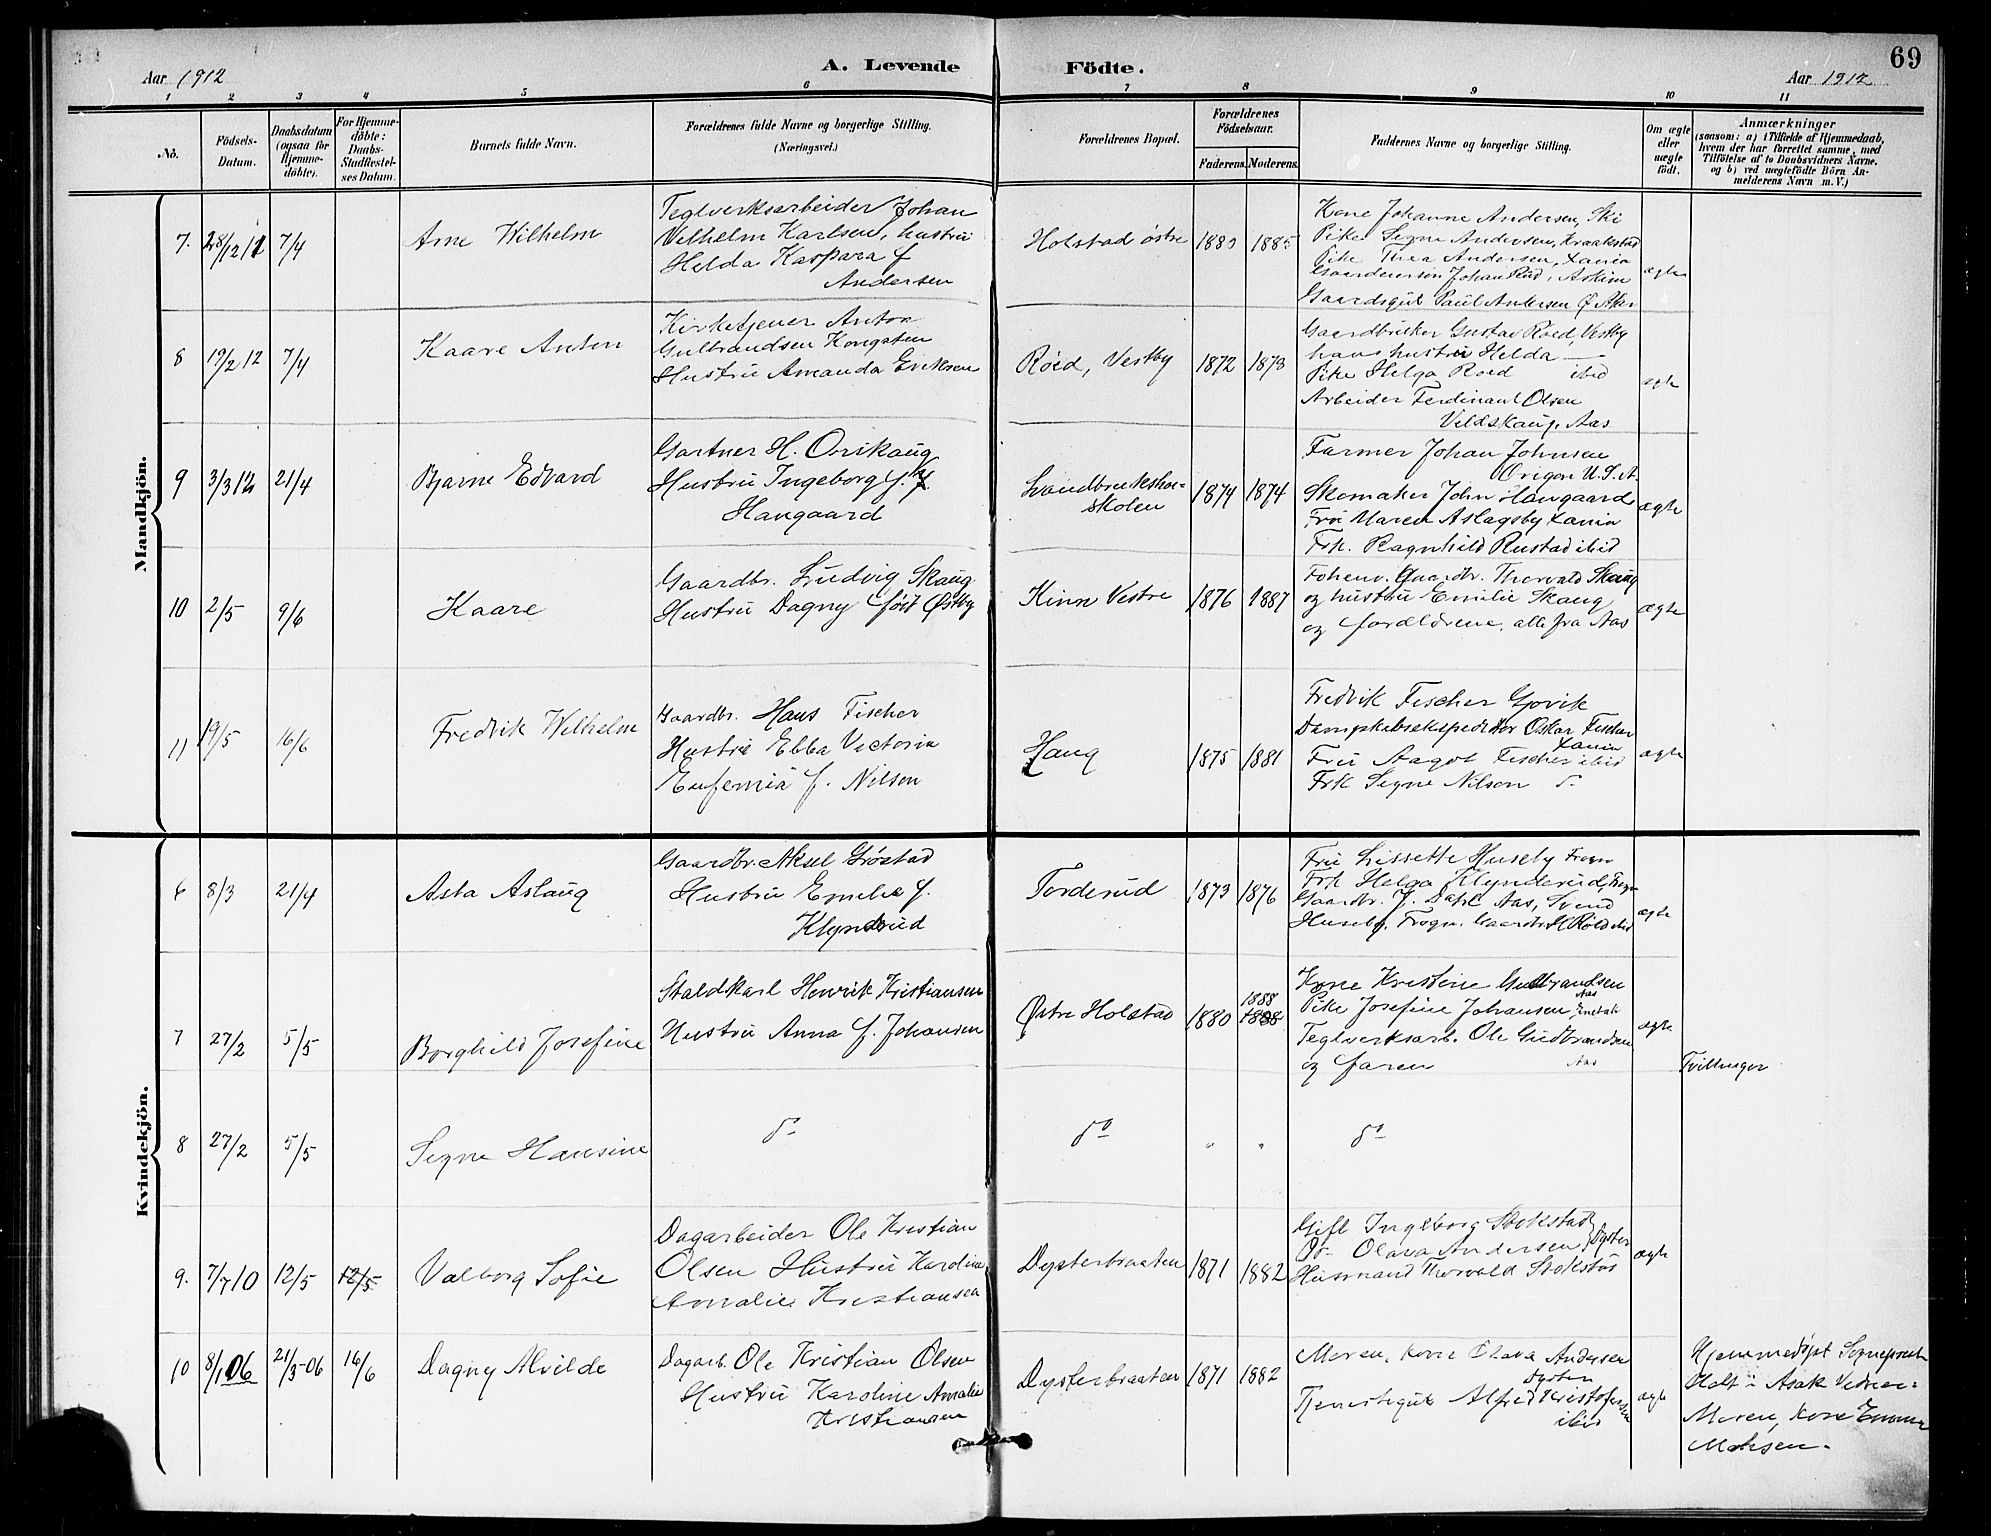 69
Aar 1912
A. Levende Födte.
Aar 1912
1 2 3 4 5 6 7 8 9 10 11
No.
Födsels-
Datum.
Daabsdatum
(ogsaa för
Hjemme-
döbte).
For Hjemme-
döbte:
Daabs-
Stadfæstel-
ses Datum.
Barnets fulde Navn.
Forældrenes fulde Navne og borgerlige Stilling.
(Næringsvei.)
Forældrenes Bopæl.
Forældrenes
Födselsaar.
Faderens. Moderens.
Faddernes Navne og borgerlige Stilling.
Om ægte
eller
uægte
födt.
Anmærkninger
(saasom: a) i Tilfælde af Hjemmedaab,
hvem der har forrettet samme, med
Tilföielse af to Daabsvidners Navne.
og b) ved uægtefödte Börn An-
melderens Navn m. V.)
Mandkjön.
7. 28/12 11 7/4
Arne Wilhelm
Teglverksarbeider Johan
Vilhelm Karlsen, hustru
Helda Kaspara f
Andersen
Holstad østre
1885
Kone Johanne Andersen, Ski
Pike Segne Andersen, Kraakstad
Pike Thea Andersen, Xania
Gaardeiersøn Johan Rud, Askim
Gaardsgut Paul Andersen Ø. Aker
ægte
8 19/2 12 7/4
Kaare Anton
Kirketjener Anton
Gulbrandsen Kongsten
Hustru Amanda Eriksen
Røed, Vestby
1872 1873
Gaardbruker Gustav Roed, Vestby
hans hustru Helda —
Pike Helga Roed ibid
Arbeider Ferdinant Olsen
Veldskaug, Aas
ægte
9 3/3 12 21/4
Bjarne Edvard
Gartner H. Orrikaug
Hustru Ingeborg f. J.
Haugaard
Landbrukshøi-
skolen
1874 1874
Farmer Johan Johnsen
Origon U.S.A.
Skomaker John Haugaard
Fru Maren Aslagsby Xania
Frk. Ragnhild Rustad ibid
ægte
10 2/5 9/6
Kaare
Gaardbr. Ludvig Skaug
Hustru Dagny født Østby
Kinn Vestre
1876 1887
Gaardbr. Thorvald Skaug
og hustru Emilie Skaug
og forældrene, alle fra Aas
ægte
11 19/5 16/6
Fredrik Wilhelm
Gaardbr. Hans Fischer
Hustru Ebba Victoria
Eufemia f. Nilson
Haug
1875 1881
Fredrik Fischer Gjovik
Dampskibsekspeditør Oskar Fischer
Xania
Fru Aagot Fischer ibid
Frk Segne Nilson do
ægte
Kvindekjön.
6 8/3 21/4
Asta Aslaug
Gaardbr. Aksel Grøstad
Hustru Emelie f.
Klynderud
Torderud
1873 1876
Fru Lissette Huseby Frogn
Frk Helga Klynderud, Frogn
Gaardbr. J. Dahl Aas, Svend
Huseby, Frogn. Gaardbr. H Røld ibid
ægte
7 27/2 5/5
Borghild Josefine
Staldkarl Henrik Kristiansen
Hustru Anna f. Johansen
Østre Holstad
1880 1888
1888
Kone Kristine Gudbrandsen
Aas
Pike Josefine Johansen, Enebak
Teglverksarb. Ole Gudbrandsen
og faren Aas
ægte
Tvillinger
8 27/2 5/5
Segne Hansine
do
do
" "
do
9. 7/7 10 12/5 12/5
Valborg Sofie
Dagarbeider Ole Kristian
Olsen Hustru Karoline
Amalie Kristiansen
Dysterbraaten
1871 1882
Gift Ingeborg Stokstad
Do- Olava Andersen, Dyster
Husmand Thorvald Stokstad
ægte
10 8/1 06 21/3-06 16/6
Dagny Alvilde
Dagarb. Ole Kristian Olsen
Hustru Karoline Amalie
Kristiansen
Dysterbraaten
1871 1882
Moren, Kone Olava Andersen
Dysten
Tjenestegut Alfred Kristofersen
ibid
ægte
Hjemmedøpt Sogneprest
Holt i Asak Vidner:
Moren, Kone Emma
Madsen.